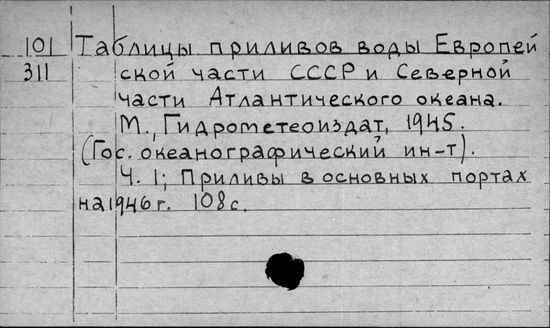 101 Таблицы приливов воды Европей
311 ской части СССР и Северной
части Атлантического океана.
М., Гидрометеоиздат, 1945.
(Гос. океанографический ин-т).
Ч. 1; Приливы в основных портах
на 1946 г. 108 с.